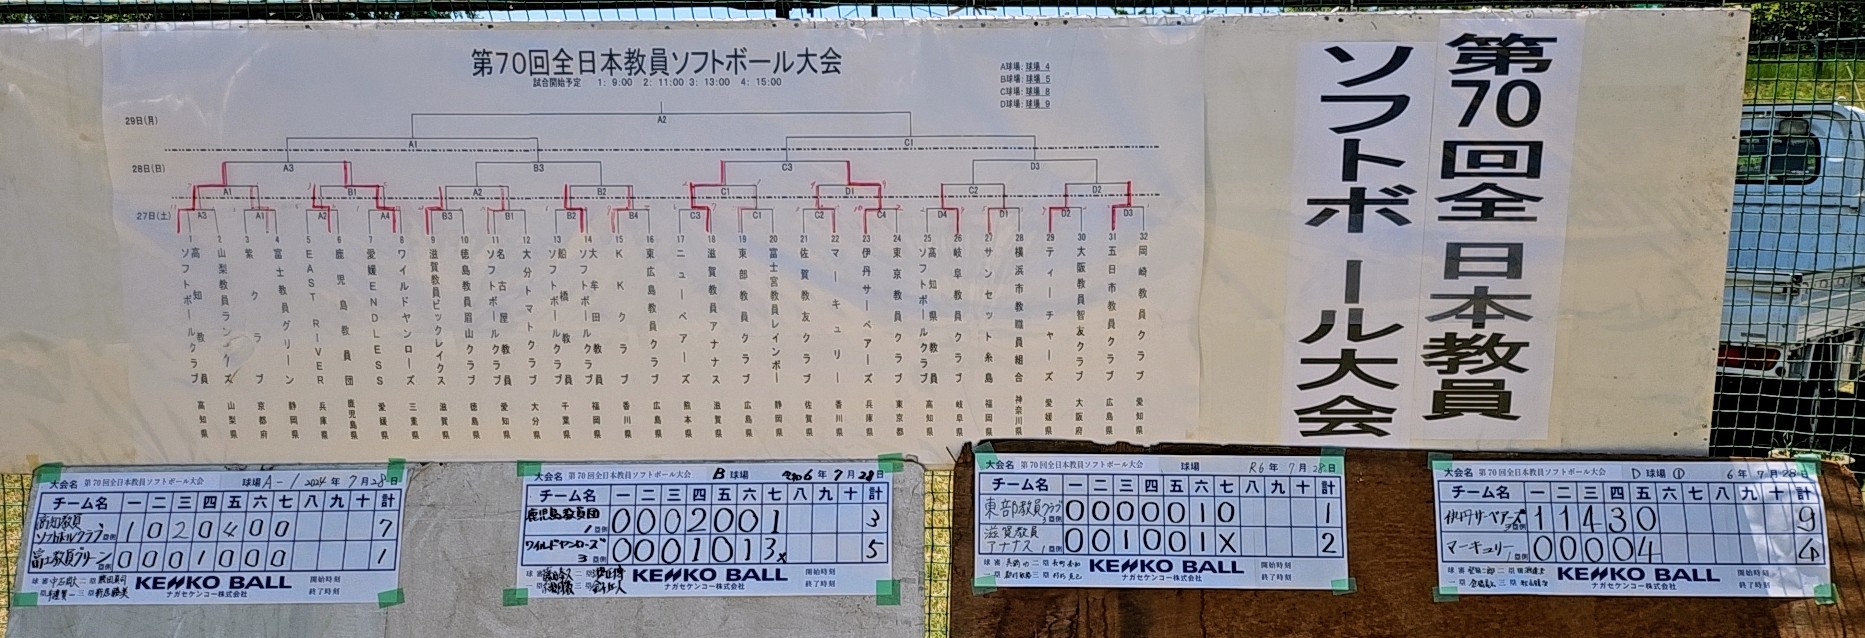 第70回全日本教員ソフトボール大会
試合開始予定 1: 9:00 2: 11:00 3: 13:00 4: 15:00
A球場: 球場 4
B球場: 球場 5
C球場: 球場 8
D球場: 球場 9
29日(月)
A2
A1 C1
28日(日)
A3 B3 C3 D3
A1 B1 A2 B2 C1 D1 C2 D2
27日(土)
A3 A1 A2 A4 B3 B1 B2 B4 C3 C1 C2 C4 D4 D1 D2 D3
1 高知教員ソフトボールクラブ 高知県
2 山梨教員ランクーズ 山梨県
3 紫クラブ 京都府
4 富士教員グリーン 静岡県
5 EAST RIVER 兵庫県
6 鹿児島教員団 鹿児島県
7 愛媛ENDLESS 愛媛県
8 ワイルドヤンローズ 三重県
9 滋賀教員ビックレイクス 滋賀県
10 徳島教員眉山クラブ 徳島県
11 名古屋教員ソフトボールクラブ 愛知県
12 大分トマトクラブ 大分県
13 船橋教員ソフトボールクラブ 千葉県
14 大牟田教員ソフトボールクラブ 福岡県
15 KKクラブ 香川県
16 東広島教員クラブ 広島県
17 ニューベアーズ 熊本県
18 滋賀教員アナナス 滋賀県
19 東部教員クラブ 広島県
20 富士宮教員レインボー 静岡県
21 佐賀教友クラブ 佐賀県
22 マーキュリー 香川県
23 伊丹サーベアーズ 兵庫県
24 東京教員クラブ 東京都
25 高知県教員ソフトボールクラブ 高知県
26 岐阜教員クラブ 岐阜県
27 サンセット糸島 福岡県
28 横浜市教職員組合 神奈川県
29 ティーチャーズ 愛媛県
30 大阪教員智友クラブ 大阪府
31 五日市教員クラブ 広島県
32 岡崎教員クラブ 愛知県
第70回全日本教員
ソフトボール大会
大会名 第70回全日本教員ソフトボール大会 球場 A-1 2024年 7月28日
チーム名 一 二 三 四 五 六 七 八 九 十 計
高知教員ソフトボールクラブ 1 0 2 0 4 0 0 7
富士教員グリーン 0 0 0 1 0 0 0 1
KENKO BALL
ナガセケンコー株式会社
開始時刻
終了時刻
大会名 第70回全日本教員ソフトボール大会 B 球場 令和6年 7月28日
チーム名 一 二 三 四 五 六 七 八 九 十 計
鹿児島教員団 0 0 0 2 0 0 1 3
ワイルドヤンローズ 0 0 0 1 0 1 3x 5
KENKO BALL
ナガセケンコー株式会社
開始時刻
終了時刻
大会名 第70回全日本教員ソフトボール大会 球場 R6年 7月28日
チーム名 一 二 三 四 五 六 七 八 九 十 計
東部教員クラブ 0 0 0 0 0 1 0 1
滋賀教員アナナス 0 0 1 0 0 1 X 2
KENKO BALL
ナガセケンコー株式会社
開始時刻
終了時刻
大会名 第70回全日本教員ソフトボール大会 D 球場 ① 6年 7月28日
チーム名 一 二 三 四 五 六 七 八 九 十 計
伊丹サーベアーズ 1 1 4 3 0 9
マーキュリー 0 0 0 0 4 4
KENKO BALL
ナガセケンコー株式会社
開始時刻
終了時刻